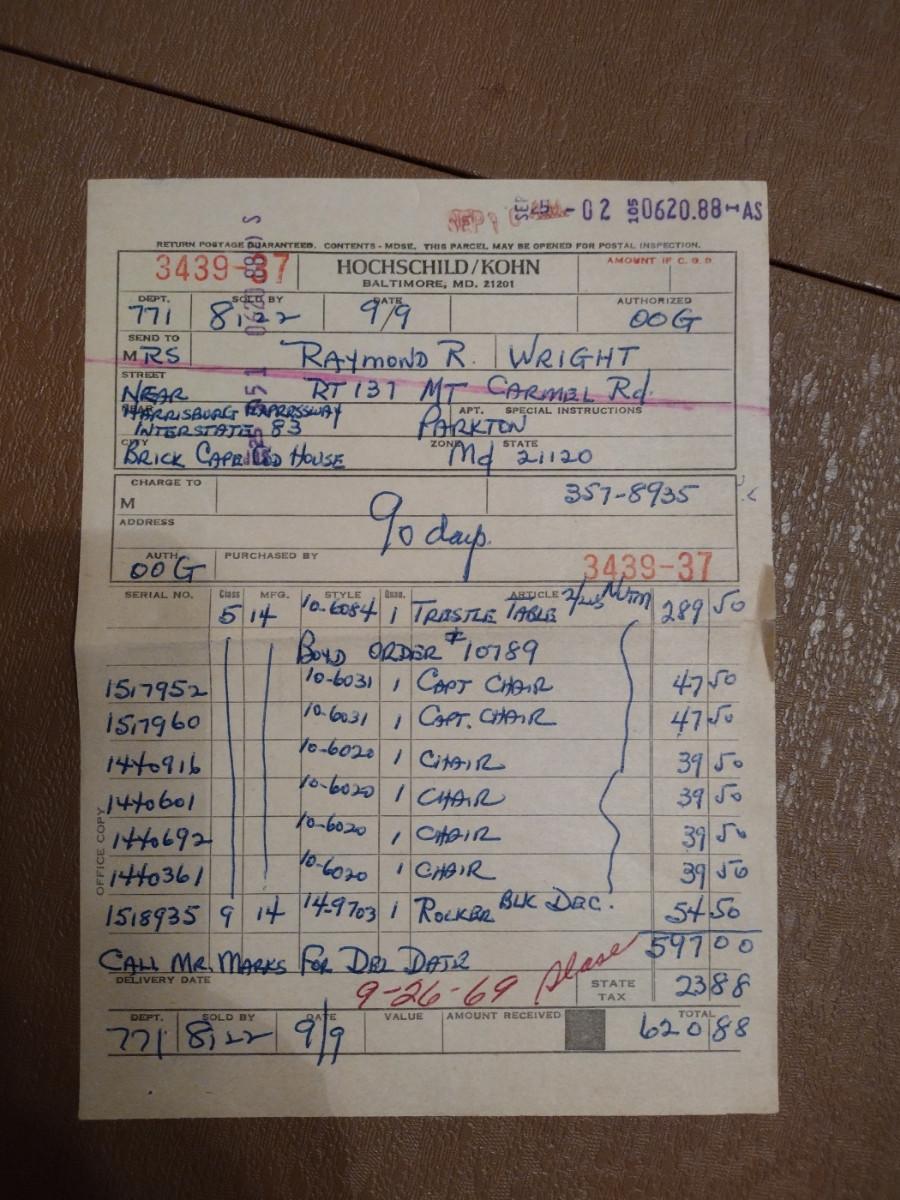 SEP 25 -02 105 0620.88 AS
RETURN POSTAGE GUARANTEED. CONTENTS - MDSE. THIS PARCEL MAY BE OPENED FOR POSTAL INSPECTION.
3439-37 HOCHSCHILD/KOHN AMOUNT IF C.O.D
BALTIMORE, MD. 21201
DEPT. SOLD BY DATE AUTHORIZED
771 8122 9/9 OOG
SEND TO
MRS RAYMOND R. WRIGHT
STREET
NEAR RT 137 MT CARMEL Rd.
HARRISBURG EXPRESSWAY APT. SPECIAL INSTRUCTIONS
INTERSTATE 83 PARKTON
CITY ZONE STATE
BRICK CAPE COD HOUSE Md 21120
CHARGE TO 357-8935
M
ADDRESS 90 days.
AUTH. PURCHASED BY 3439-37
OOG
SERIAL NO. Class MFG. STYLE Quan. ARTICLE
5 14 10-6084 1 TRESTLE TABLE 289 50
BOYD ORDER # 10789
1517952 10-6031 1 CAPT CHAIR 47 50
1517960 10-6031 1 CAPT. CHAIR 47 50
1440916 10-6020 1 CHAIR 39 50
1440601 10-6020 1 CHAIR 39 50
1440692 10-6020 1 CHAIR 39 50
1440361 10-6020 1 CHAIR 39 50
1518935 9 14 14-9703 1 ROCKER BLK DEC. 54 50
OFFICE COPY
597 00
CALL MR. MARKS FOR DEL DATE
DELIVERY DATE 9-26-69 please STATE TAX 23 88
DEPT. SOLD BY DATE VALUE AMOUNT RECEIVED TOTAL
771 8122 9/9 620 88